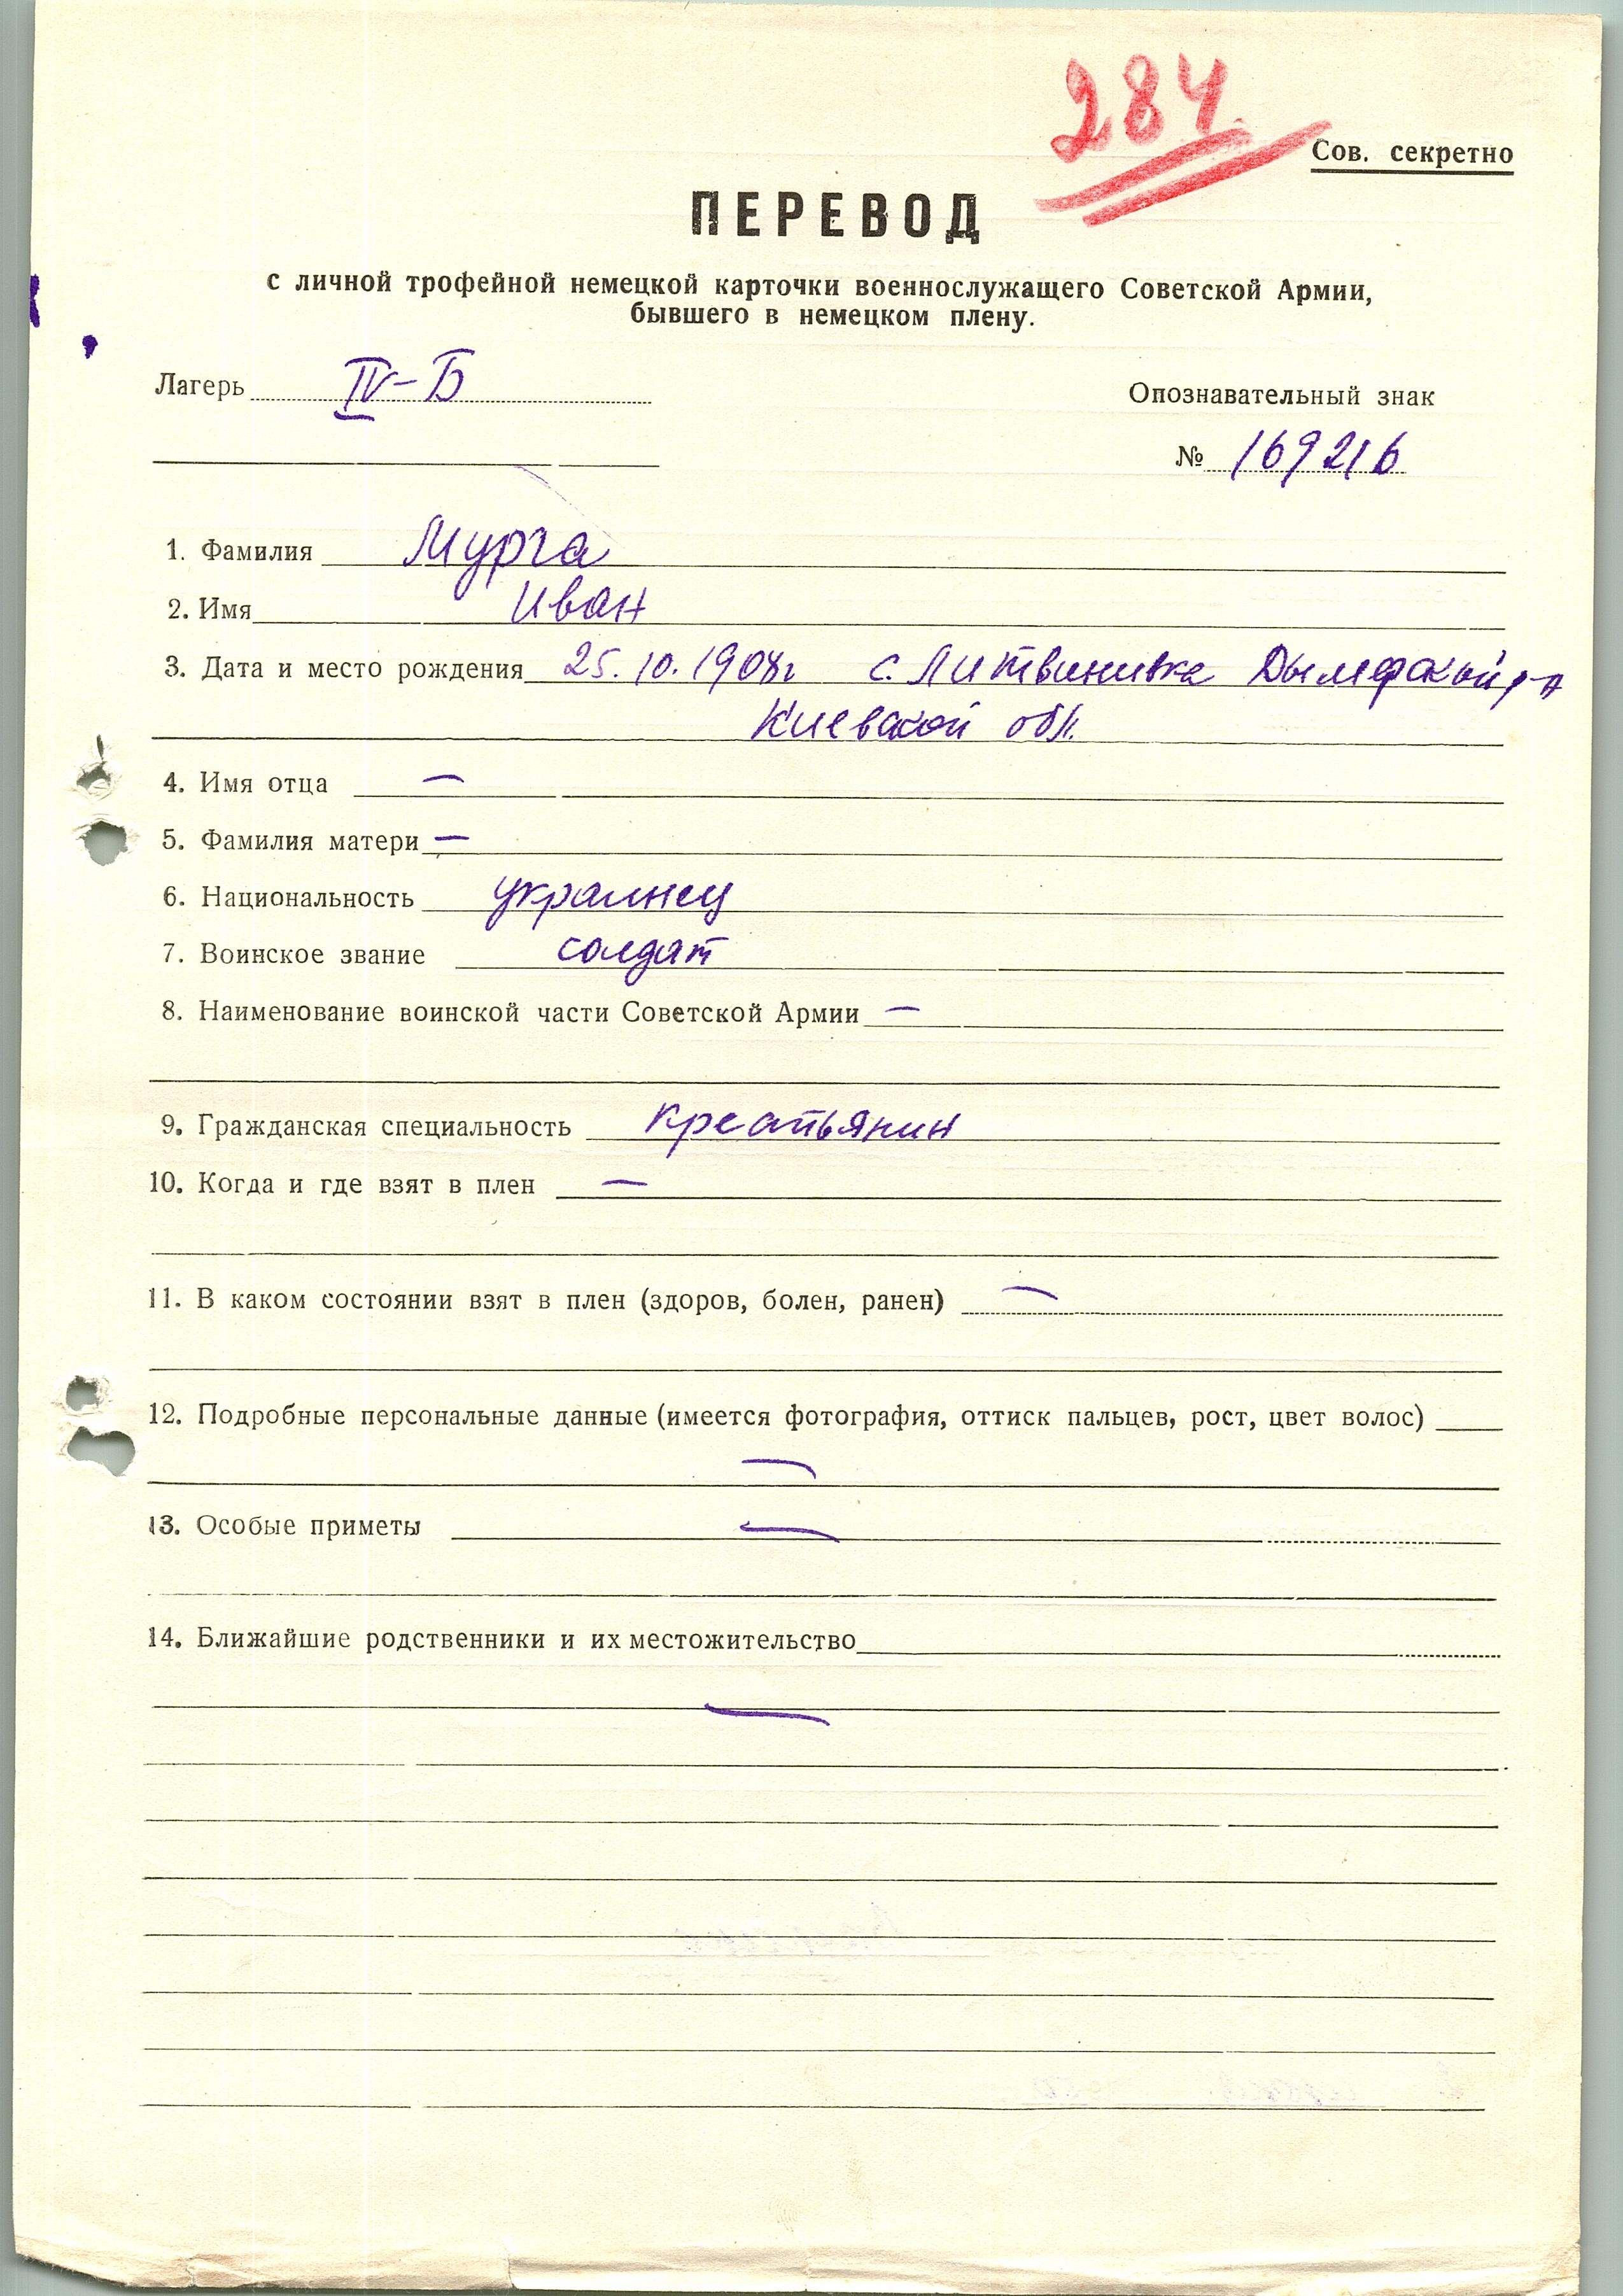 284.
Сов. секретно
ПЕРЕВОД
с личной трофейной немецкой карточки военнослужащего Советской Армии,
бывшего в немецком плену.
Лагерь IV-Б
Опознавательный знак
№ 169216
1. Фамилия Мурга
2. Имя Иван
3. Дата и место рождения 25.10.1908г с. Литвиновка Дымерский р-н
Киевской обл.
4. Имя отца —
5. Фамилия матери —
6. Национальность украинец
7. Воинское звание солдат
8. Наименование воинской части Советской Армии —
9. Гражданская специальность крестьянин
10. Когда и где взят в плен —
11. В каком состоянии взят в плен (здоров, болен, ранен) —
12. Подробные персональные данные (имеется фотография, оттиск пальцев, рост, цвет волос)
—
13. Особые приметы —
14. Ближайшие родственники и их местожительство
—